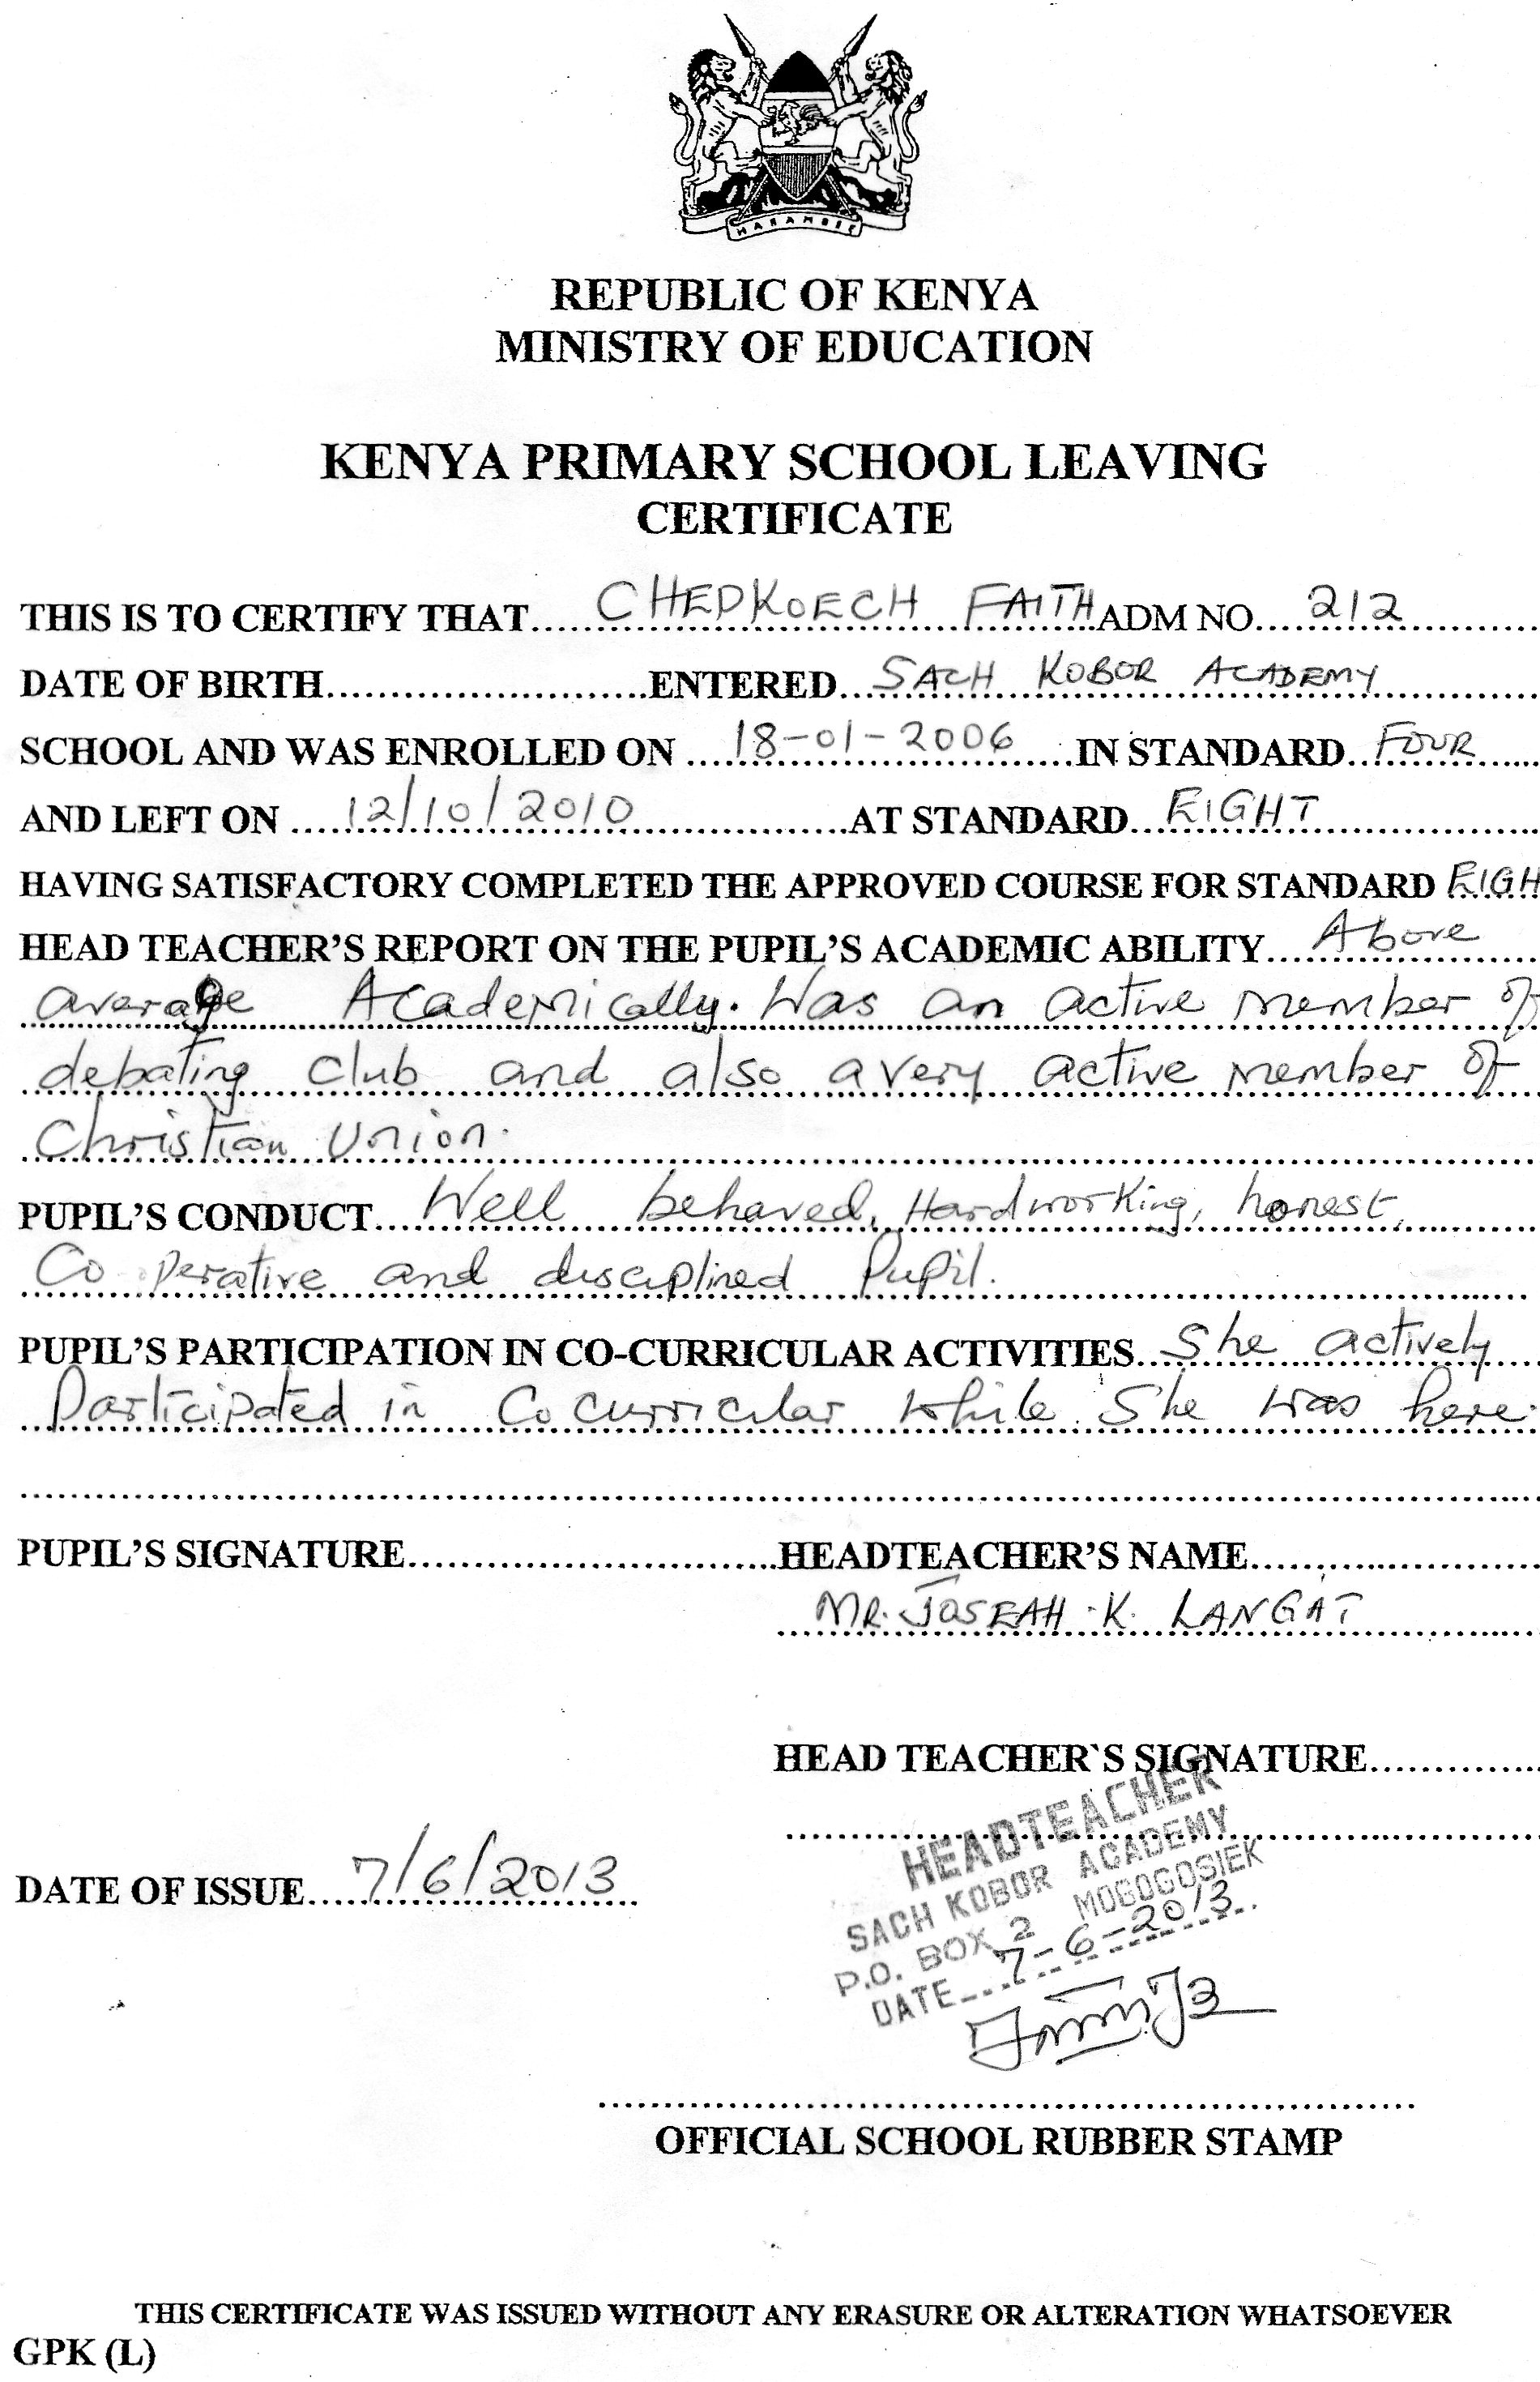 HARAMBEE
REPUBLIC OF KENYA
MINISTRY OF EDUCATION
KENYA PRIMARY SCHOOL LEAVING
CERTIFICATE
THIS IS TO CERTIFY THAT CHEPKOECH FAITH ADM NO 212
DATE OF BIRTH ENTERED SACH KOBOR ACADEMY
SCHOOL AND WAS ENROLLED ON 18-01-2006 IN STANDARD FOUR
AND LEFT ON 12/10/2010 AT STANDARD EIGHT
HAVING SATISFACTORY COMPLETED THE APPROVED COURSE FOR STANDARD EIGH
HEAD TEACHER'S REPORT ON THE PUPIL'S ACADEMIC ABILITY Above
average Academically. Was an active member of
debating club and also a very active member of
Christian Union.
PUPIL'S CONDUCT Well behaved, Hardworking, honest,
Co operative and disciplined Pupil.
PUPIL'S PARTICIPATION IN CO-CURRICULAR ACTIVITIES She actively
Participated in Co curricular while She was here.
PUPIL'S SIGNATURE HEADTEACHER'S NAME
MR. JOSEAH .K. LANGAT
HEAD TEACHER`S SIGNATURE
HEADTEACHER
SACH KOBOR ACADEMY
P.O. BOX 2 MOGOGOSIEK
DATE 7-6-2013
DATE OF ISSUE 7/6/2013
OFFICIAL SCHOOL RUBBER STAMP
THIS CERTIFICATE WAS ISSUED WITHOUT ANY ERASURE OR ALTERATION WHATSOEVER
GPK (L)